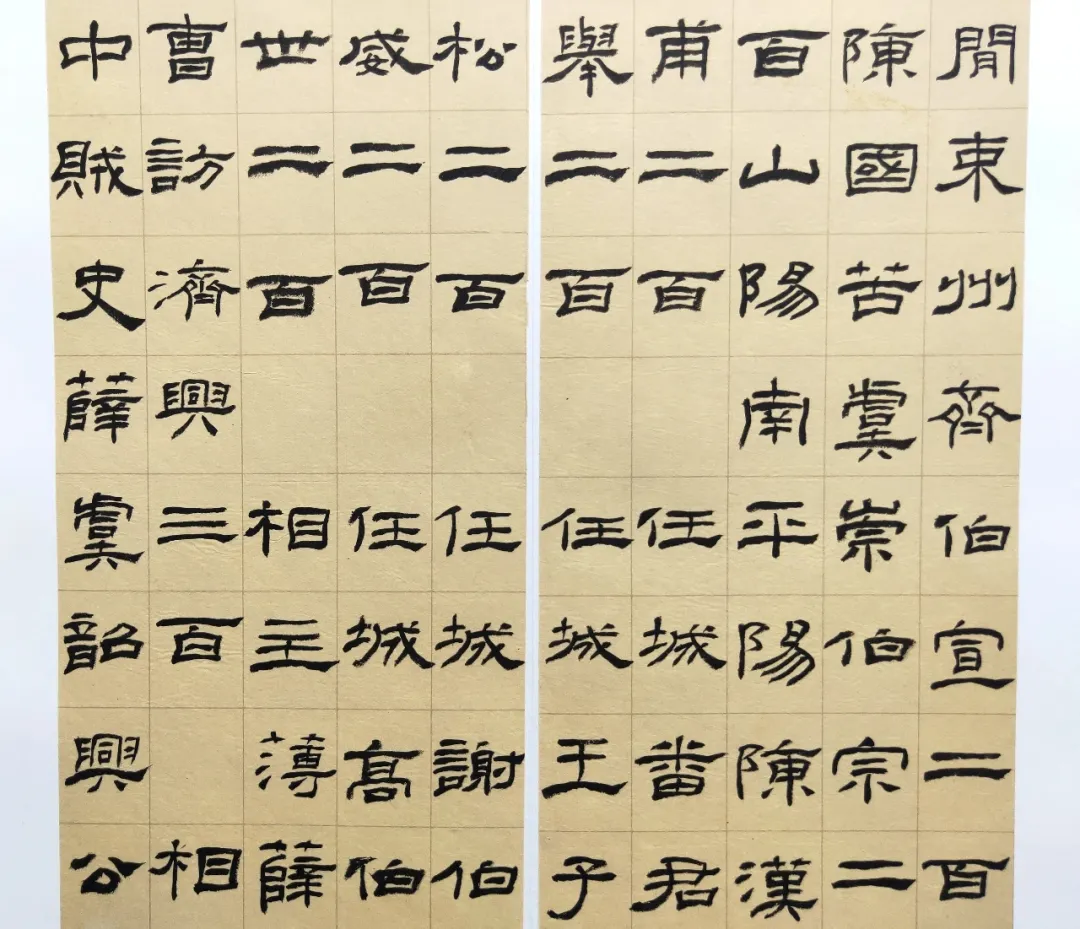 閒束州齊伯宣二百
陳國苦虞崇伯宗二
百山陽南平陽陳漢
甫二百 任城番君
舉二百 任城王子
松二百 任城謝伯
威二百 任城髙伯
世二百 相主薄薛
曹訪濟興三百 相
中賊史薛虞韶興公